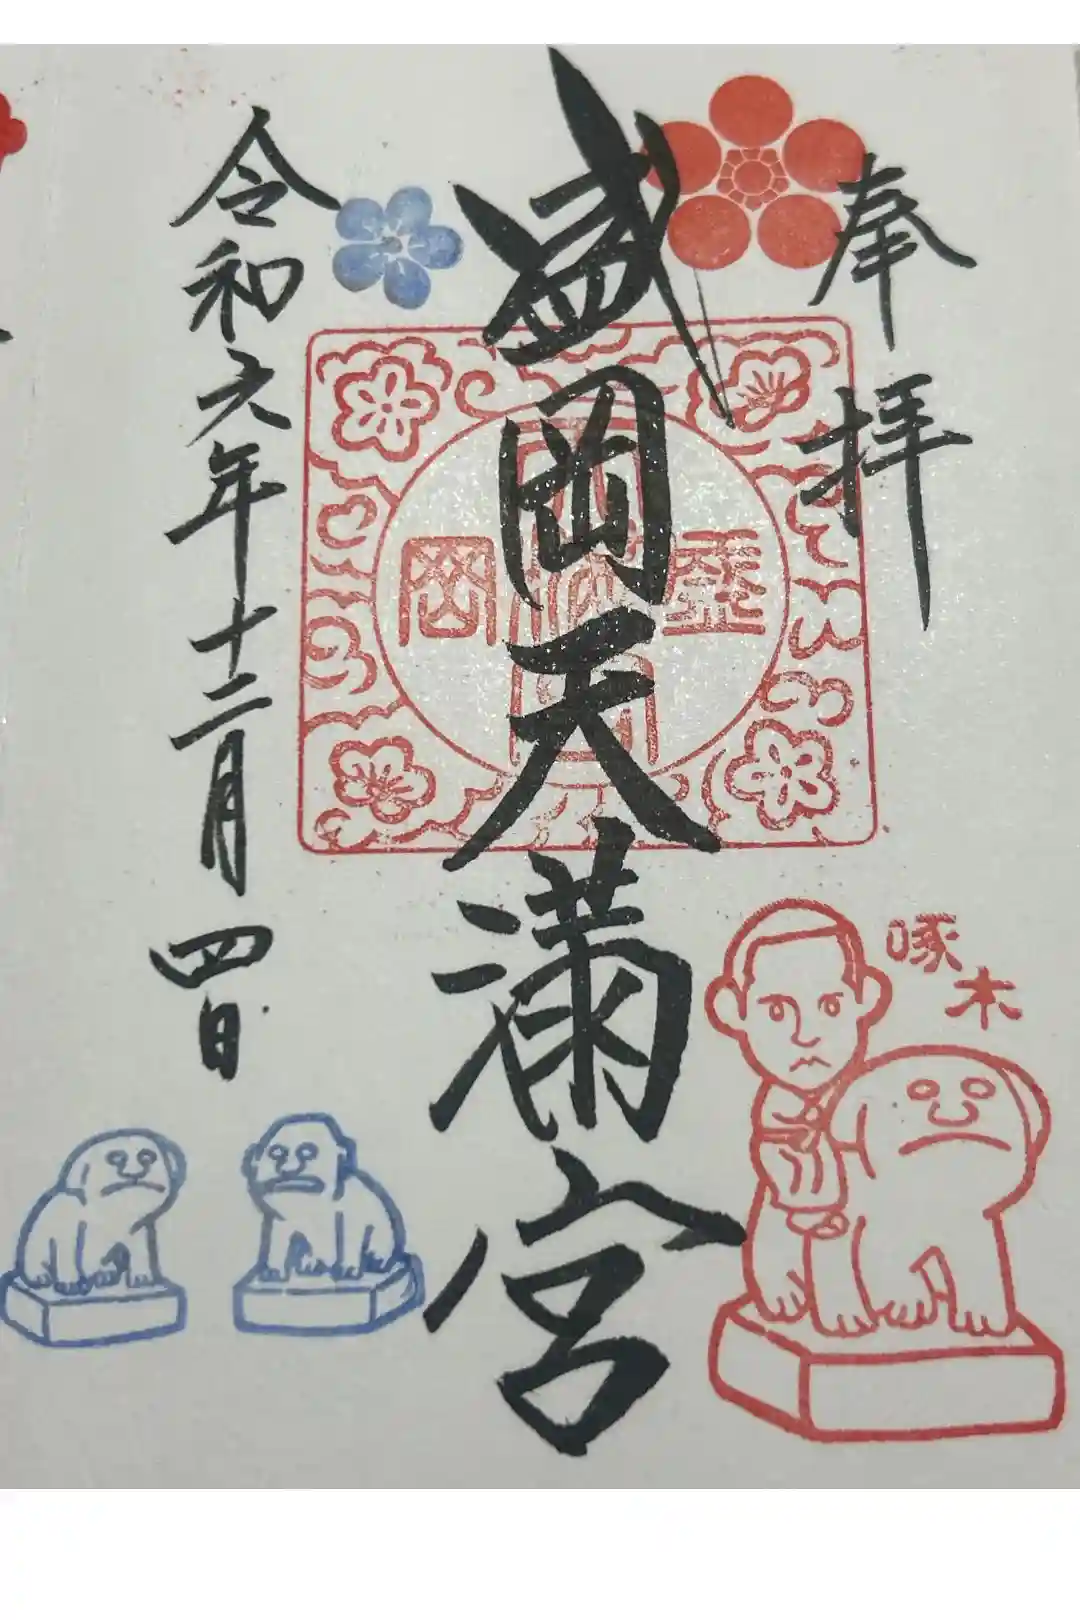 奉拝
盛岡天満宮
令和六年十二月四日
盛
岡
啄木